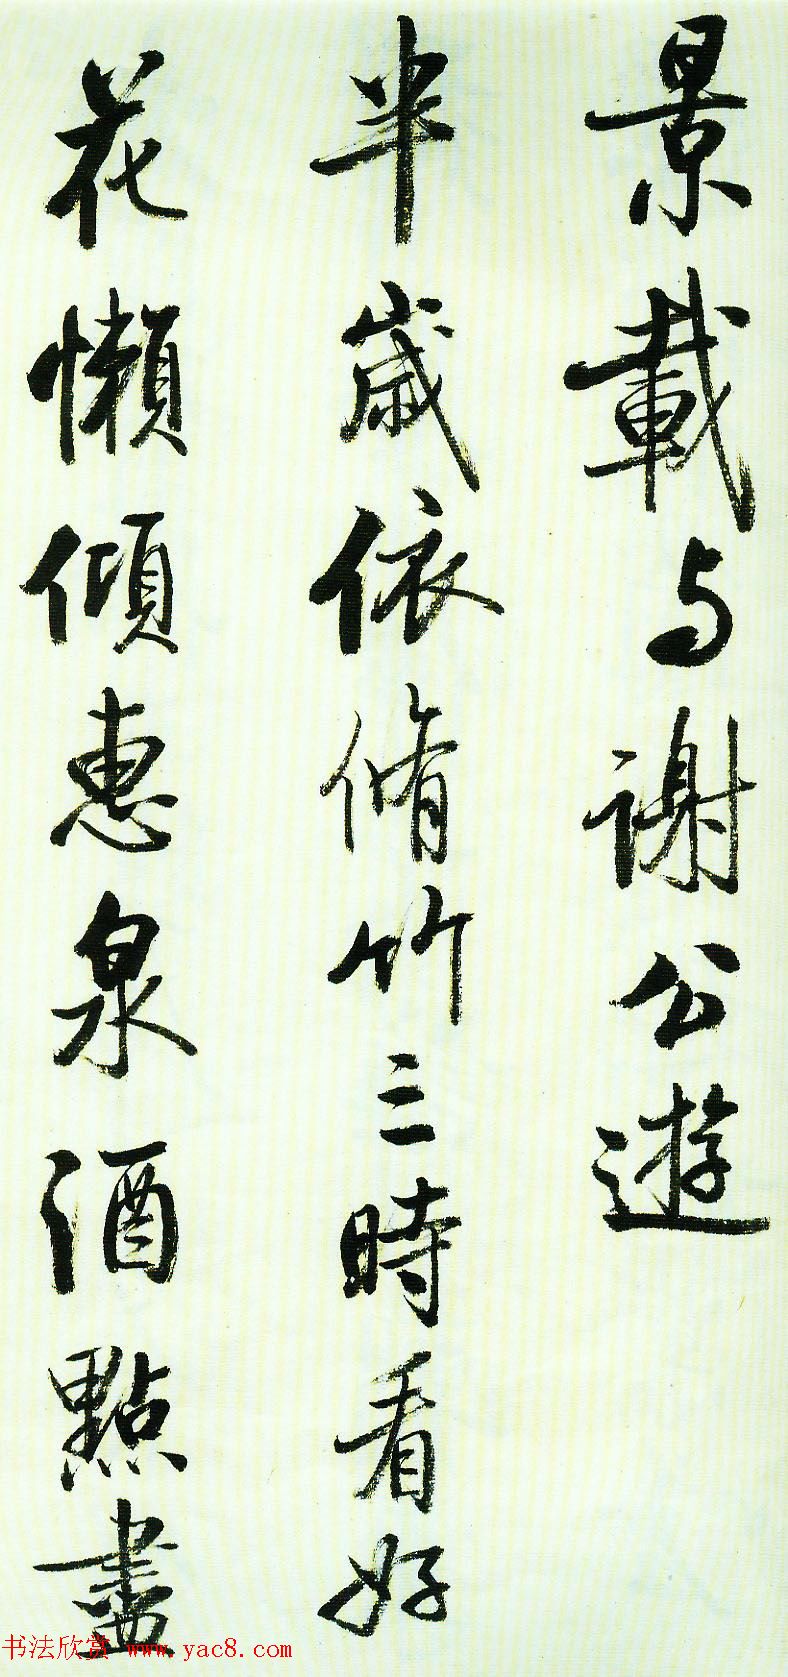 景載与謝公遊
半歳依脩竹三時看好
花懶傾惠泉酒點盡
书法欣赏 www.yac8.com